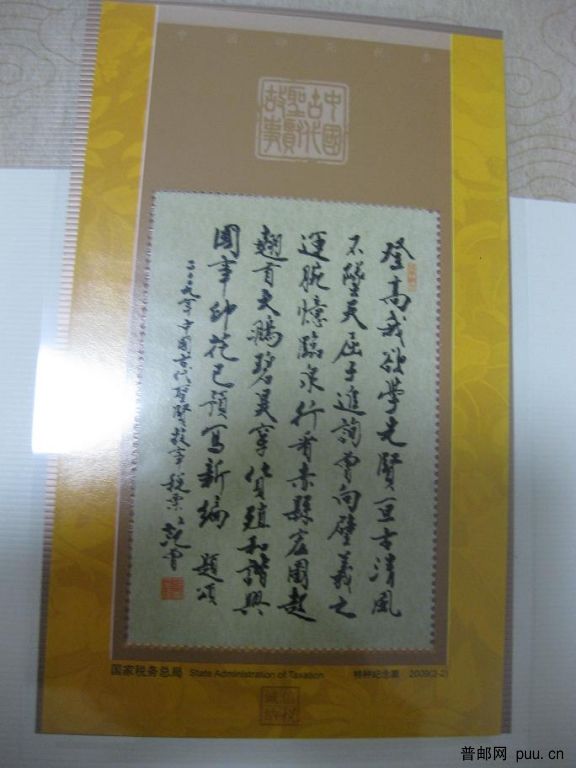 中國印花税票
中國古代聖賢故事
登高我欲學先賢亘古清風
不墜天屈子進詢曾向壁羲之
運腕憶臨泉行看赤縣宏圖起
翹首天鵬碧美寧貨殖和諧興
國事印花已預寫新編 題頌
二〇〇九年中國古代聖賢故事税票
国家税务总局 State Administration of Taxation 特种纪念票 2009(2-2)
普邮网 puu.cn